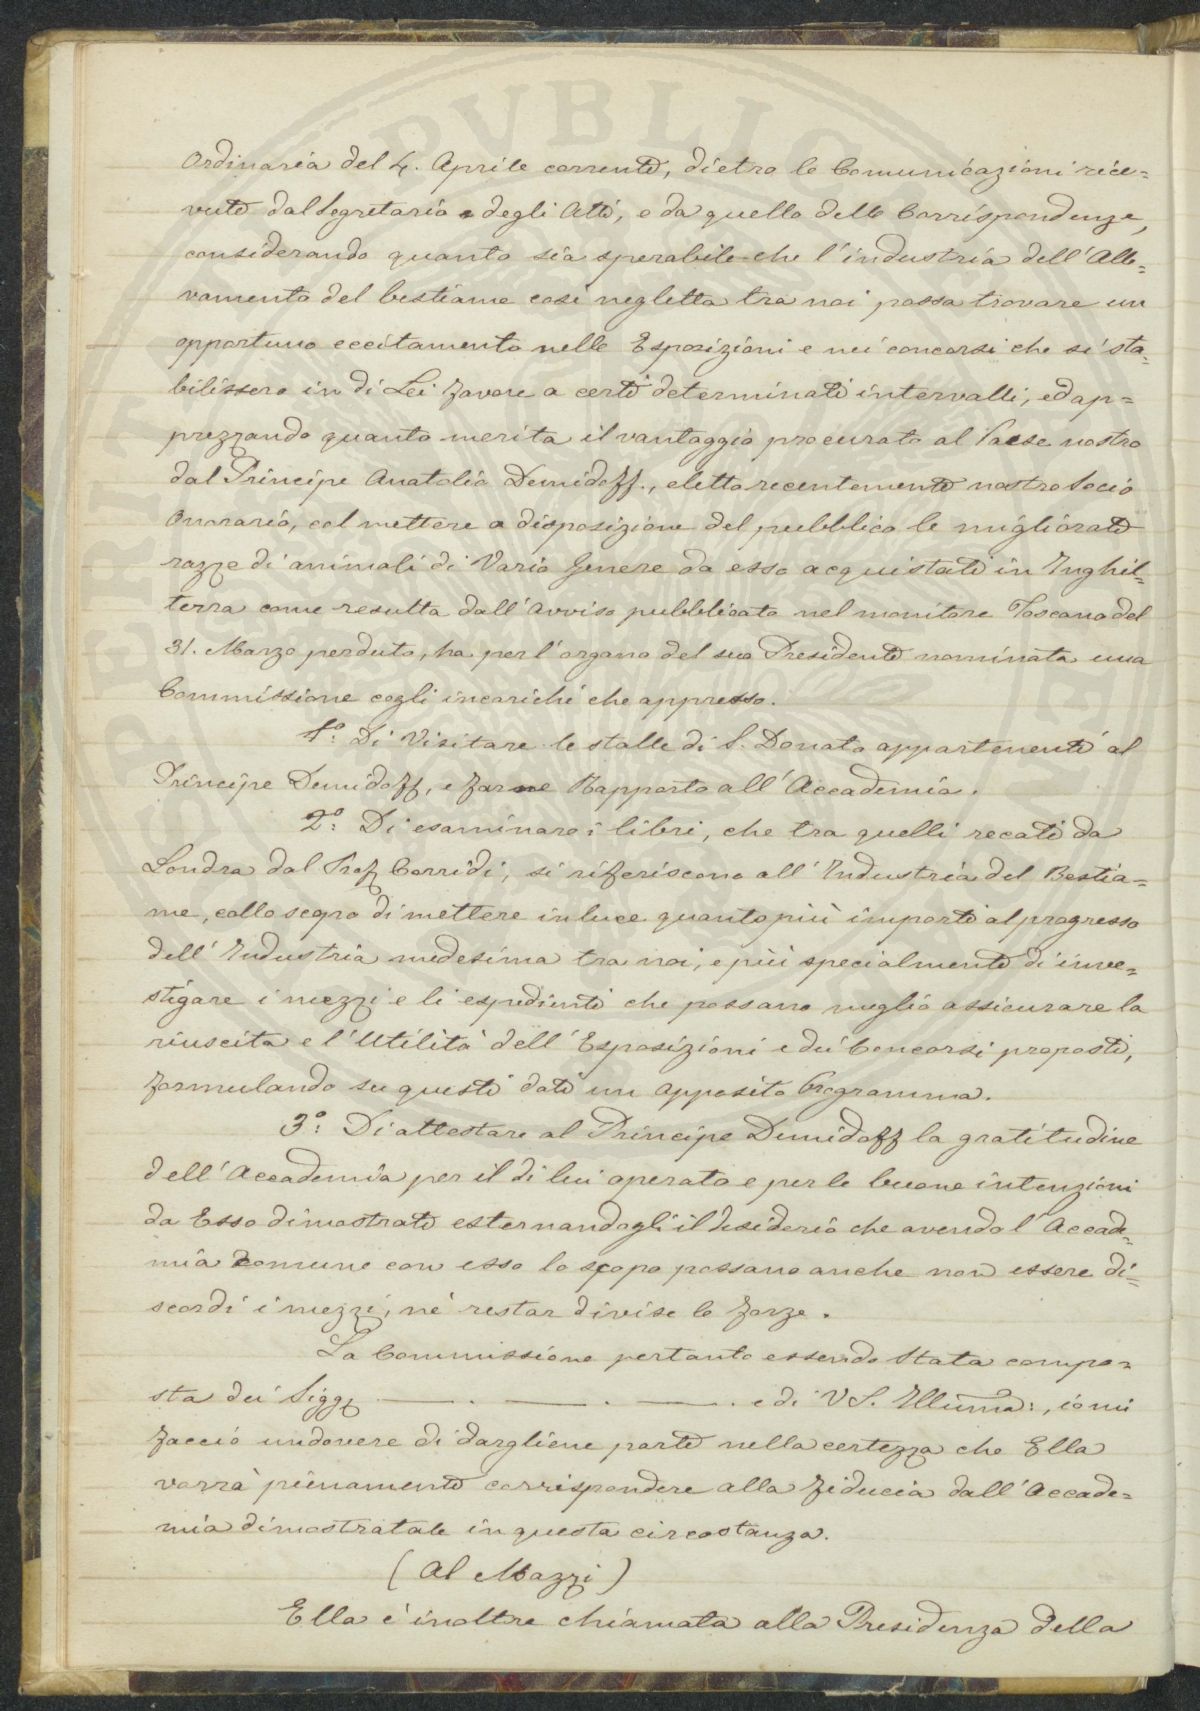 PVBLIC
Ordinaria del 4. Aprile corrente, dietro le Comunicazioni rice=
vute dal Segretario degli Atti, e da quello delle Corrispondenze,
considerando quanto sia sperabile che l'industria dell'Alle=
vamento del bestiame così negletta tra noi possa trovare un
opportuno eccitamento nelle Esposizioni e nei concorsi che si sta=
bilissero in di Lei favore a certi determinati intervalli, ed ap=
prezzando quanto merita il vantaggio procurato al Paese nostro
dal Principe Anatolio Demidoff., eletto recentemente nostro Socio
Onorario, col mettere a disposizione del pubblico le migliorate
razze di animali di Vario Genere da esso acquistati in Inghil=
terra come resulta dall'Avviso pubblicato nel monitore Toscano del
31. Marzo perduto, ha per l'organo del suo Presidente nominata una
Commissione cogli incarichi che appresso.
1º: Di Visitare le stalle di S. Donato appartenenti al
Principe Demidoff, e farne Rapporto all'Accademia.
2º: Di esaminare i libri, che tra quelli recati da
Londra dal Prof Corridi, si riferiscono all'Industria del Bestia=
me, collo scopo di mettere in luce quanto più importi al progresso
dell'Industria medesima tra noi, e più specialmente di inve=
stigare i mezzi e li espedienti che possano meglio assicurare la
riuscita e l'Utilità dell'Esposizioni e dei Concorsi proposti,
formulando su questi dati un apposito Programma.
3º: Di attestare al Principe Demidoff la gratitudine
dell'Accademia per il di lui operato e per le buone intenzioni
da Esso dimostrate esternandogli il desiderio che avendo l'Accade=
mia comune con esso lo scopo possano anche non essere di=
scordi i mezzi, nè restar divise le forze.
La Commissione pertanto essendo Stata compo=
sta dei Sigg ——— . ——— . ——— . e di V S. Illuma:, io mi
faccio un dovere di dargliene parte nella certezza che Ella
vorrà pienamente corrispondere alla fiducia dall'Accade=
mia dimostratale in questa circostanza.
(Al Mazzi)
Ella è inoltre chiamata alla Presidenza della